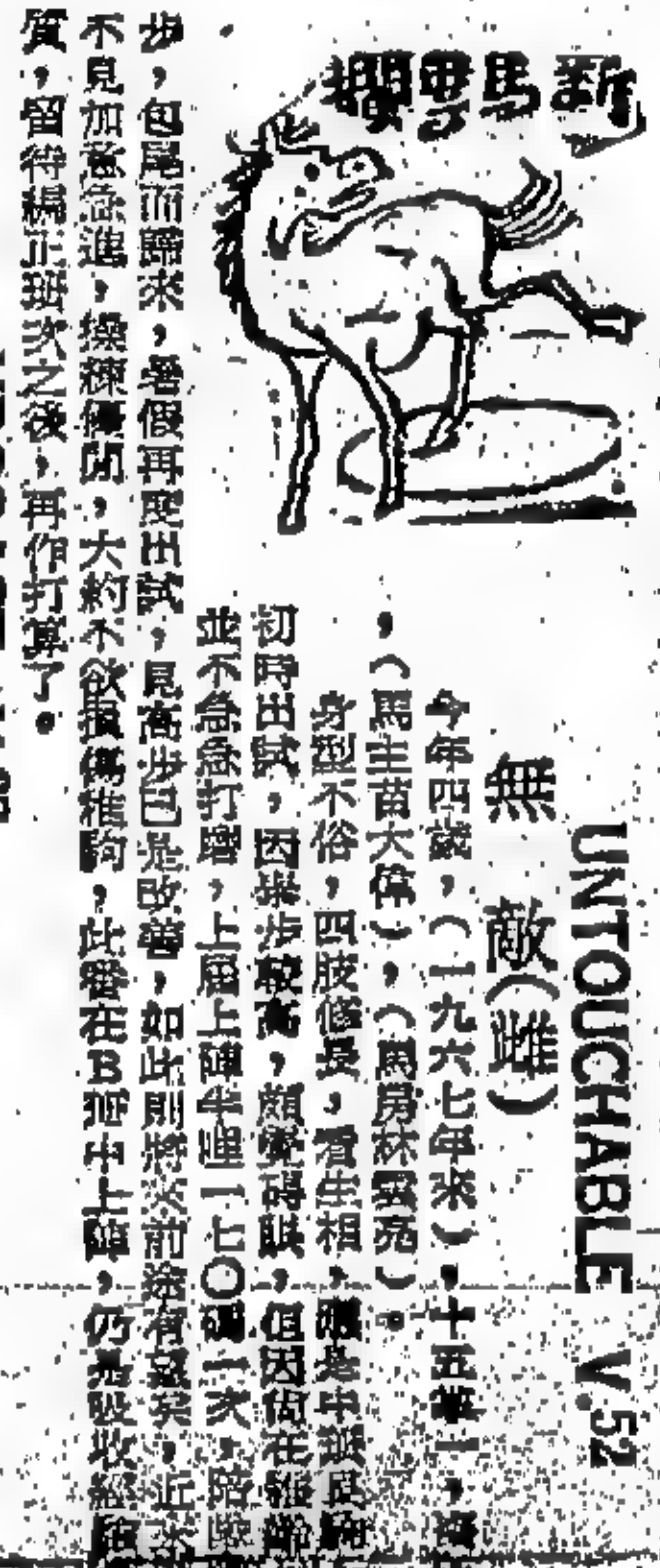 新馬零攖
UNTOUCHABLE V.52
無敵(雌)
今年四歲，（一九六七年來），十五掌一，
，（馬主苗大偉），（馬房林雲亮）。
身型不俗，四肢修長，看生相，
初時出試，因舉步較高，頗覺碍眼，但因尚在雅齡
並不急急打磨，上屆上陣半哩一七〇碼一次，陪
步，包尾而歸來，暑假再度出試，見高步已是改善，如此則將來前途有望矣，近來
不見加意急進，操練優閒，大約不欲損傷雅駒，此番在B班中上陣，仍是吸收經驗
質，留待編正班次之後，再作打算了。